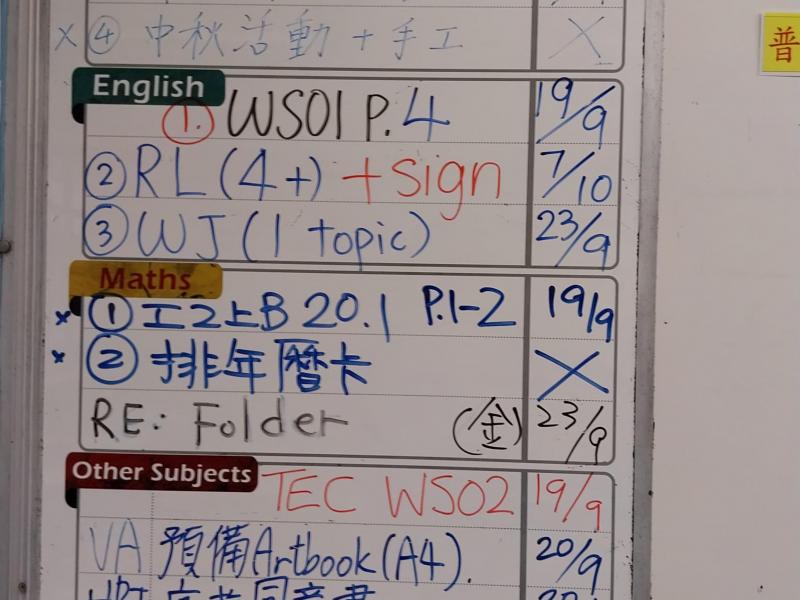 x ④ 中秋活動 + 手工 X
普
English
1. WS01 P.4 19/9
② RL (4+) + sign 7/10
③ WJ (1 topic) 23/9
Maths
x ① 工2上B 20.1 P.1-2 19/9
x ② 排年曆卡 X
RE: Folder (金) 23/9
Other Subjects
TEC WS02 19/9
VA 預備Artbook(A4). 20/9